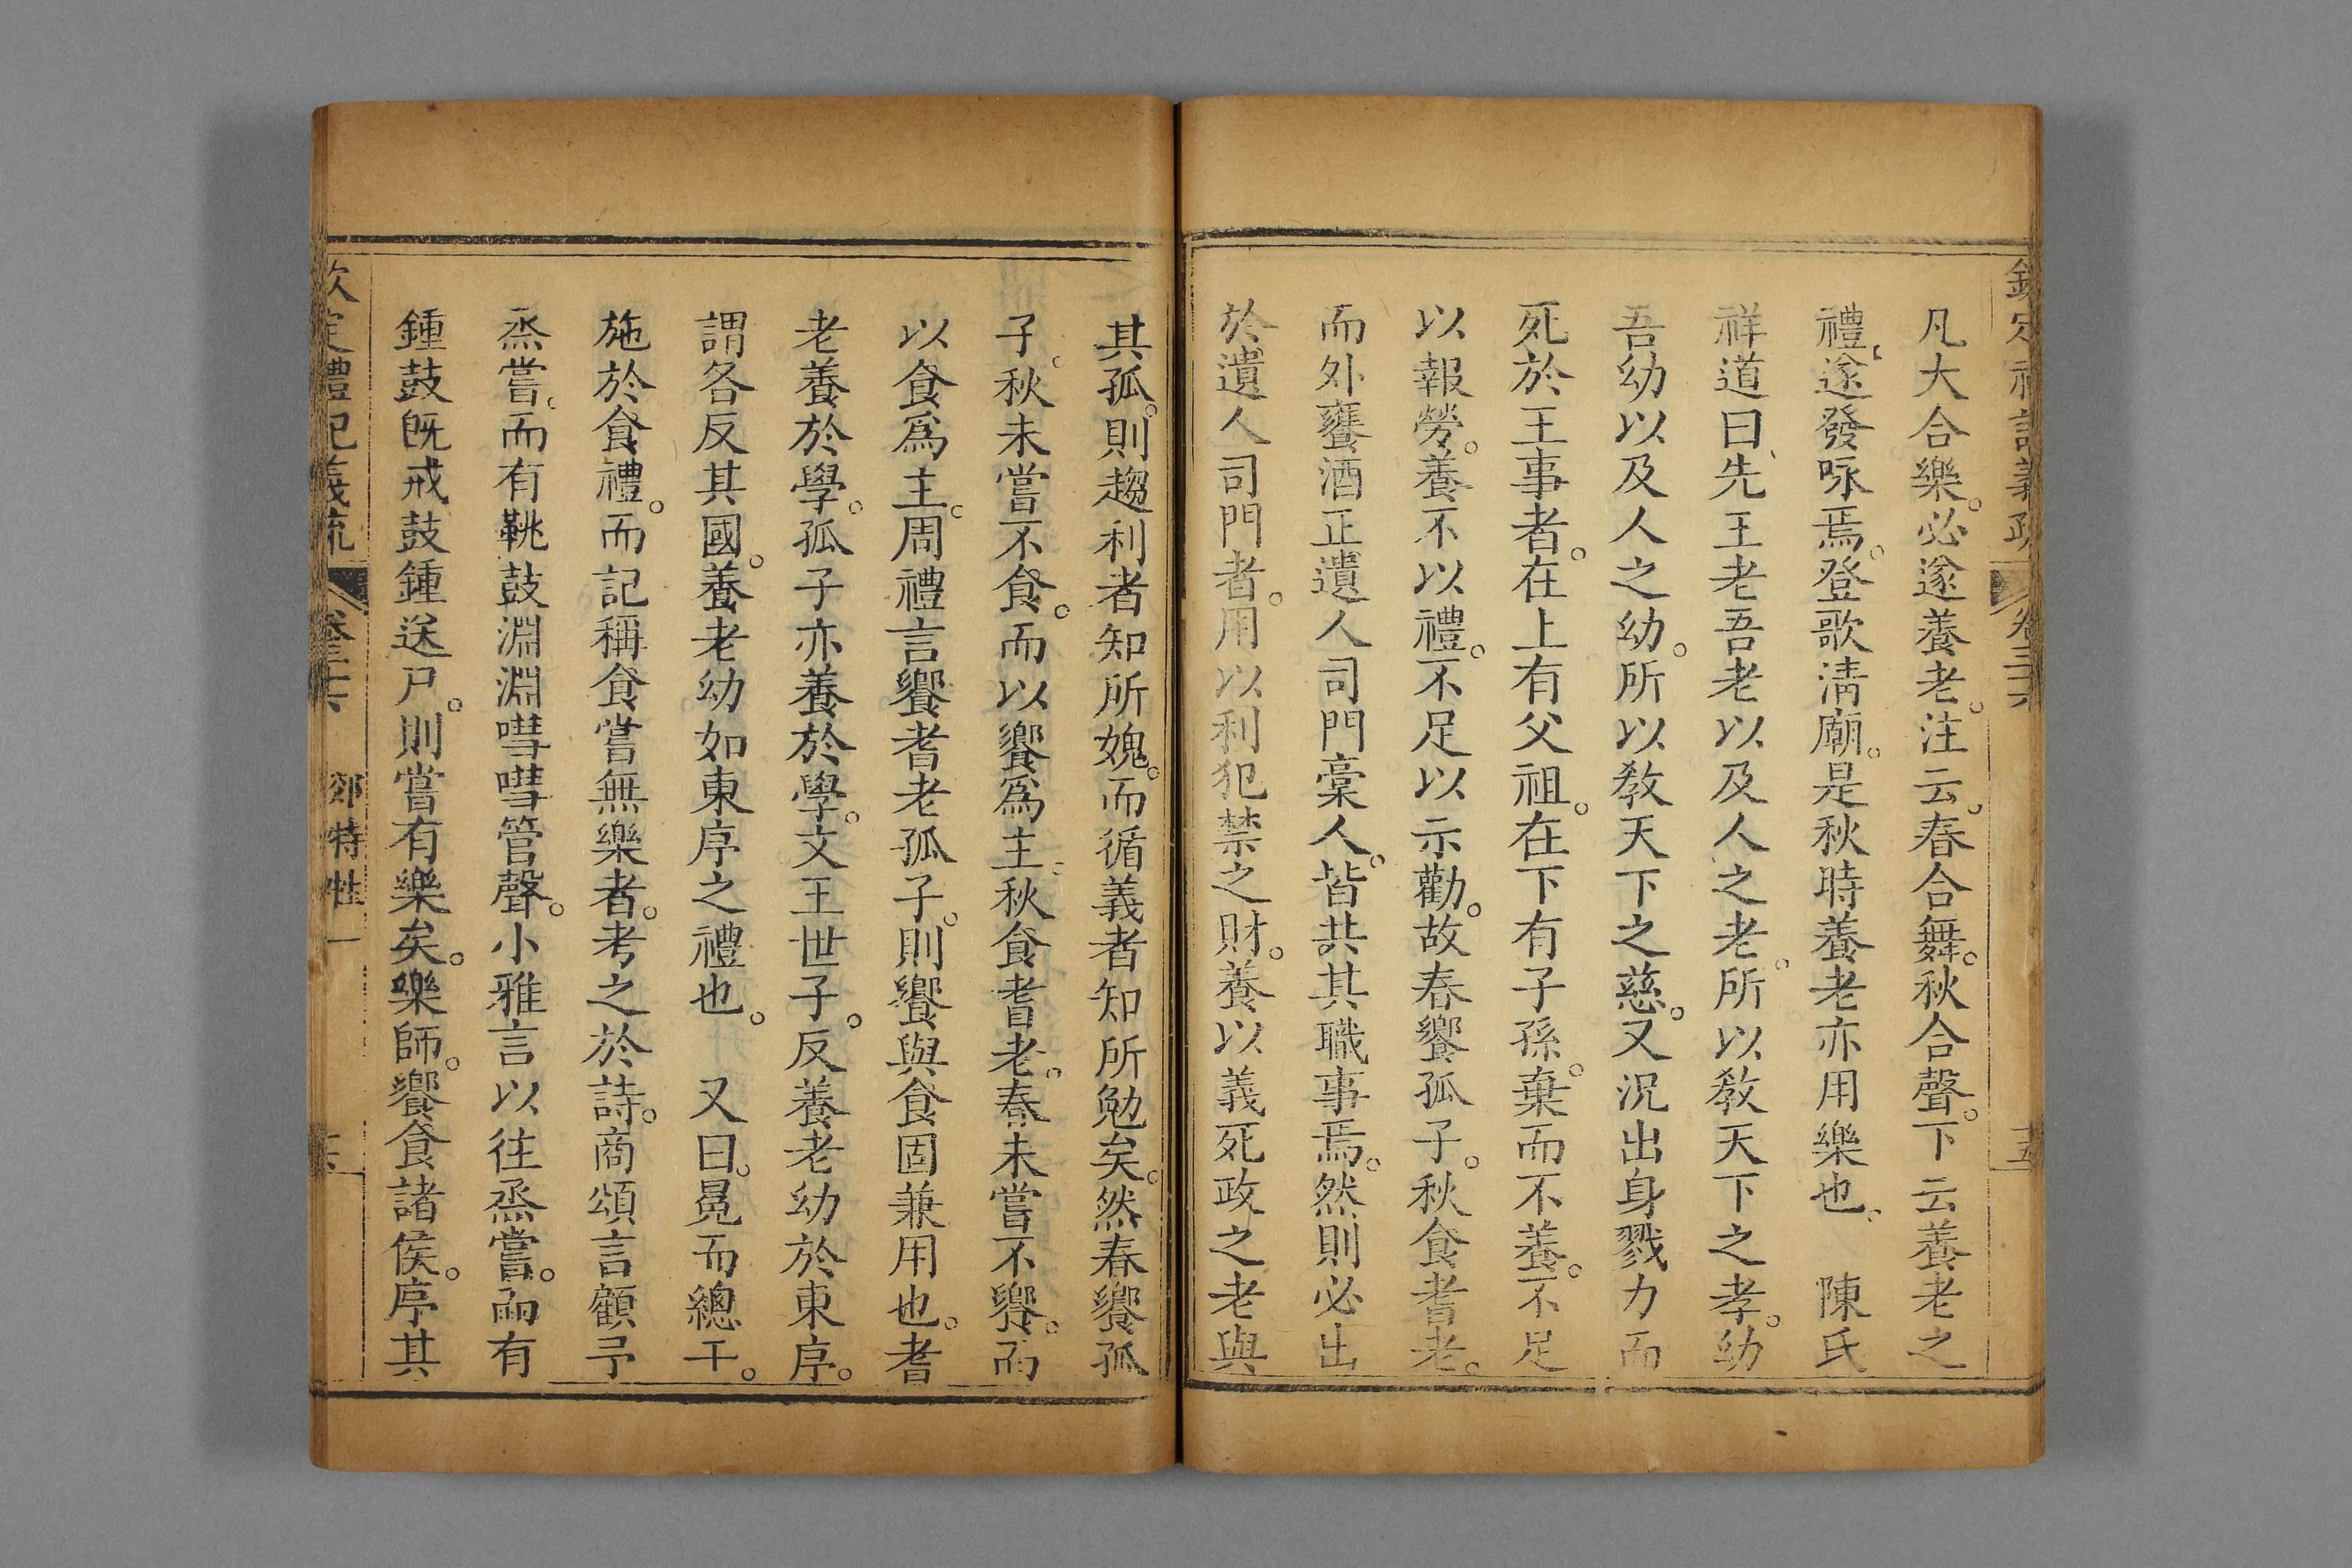 凡大合樂。必遂養老。注云。春合舞。秋合聲。下云養老之
禮。遂發咏焉。登歌淸廟。是秋時養老亦用樂也。 陳氏
祥道曰。先王老吾老以及人之老。所以敎天下之孝。幼
吾幼以及人之幼。所以敎天下之慈。又況出身戮力而
死於王事者。在上有父祖。在下有子孫。棄而不養。不足
以報勞。養不以禮。不足以示勸。故春饗孤子。秋食耆老。
而外饔酒正遺人司門槀人。皆共其職事焉。然則必出
於遺人司門者。用以利犯禁之財。養以義死政之老與
其孤。則趨利者知所媿。而循義者知所勉矣。然春饗孤
子。秋未嘗不食。而以饗爲主。秋食耆老。春未嘗不饗。而
以食爲主。周禮言饗耆老孤子。則饗與食固兼用也。耆
老養於學。孤子亦養於學。文王世子。反養老幼於東序。
謂各反其國。養老幼如東序之禮也。 又曰。冕而總干。
施於食禮。而記稱食嘗無樂者。考之於詩。商頌言顧予
烝嘗。而有鞉鼓淵淵嘒嘒管聲。小雅言以往烝嘗。而有
鍾鼓旣戒鼓鍾送尸。則嘗有樂矣。樂師。饗食諸侯。序其
欽定禮記義疏 卷三十六 郊特牲一